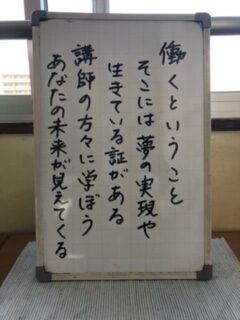 働くということ
そこには夢の実現や
生きている証がある
講師の方々に学ぼう
あなたの未来が見えてくる